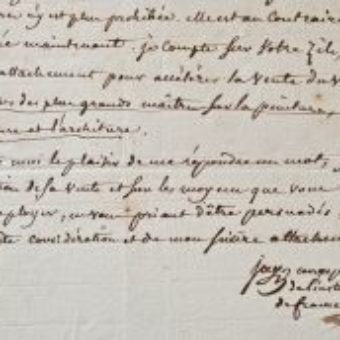 n'y est plus prohibée. elle est au contraire
maintenant. je compte sur votre zèle,
attachement pour accélérer la vente du
des plus grands maître sur la peinture,
et l'architure.
moi le plaisir de me répondre un mot,
de la vente et sur les moyen que vous
employer, en vous priant d'être persuadés
considération et de mon sincère attachem
de l'inst
de france